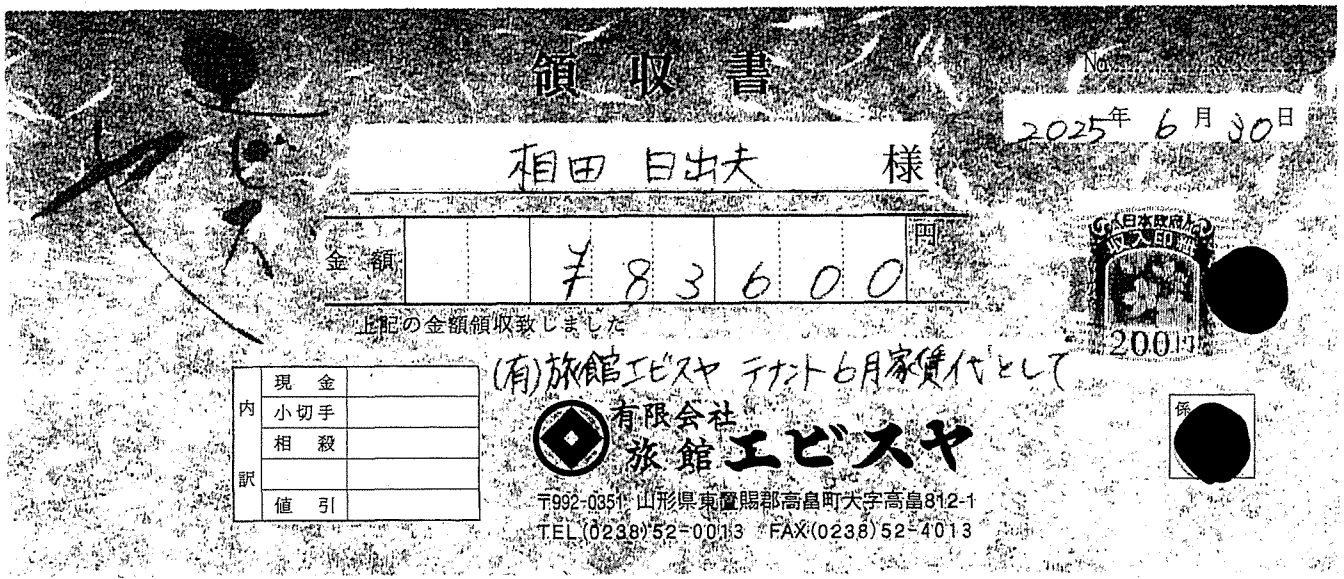 領収書
No.
2025年 6月 30日
相田 日出夫 様
金額 ¥83600 円
上記の金額領収致しました
(有)旅館エビスヤ テナント6月家賃代として
日本政府
収入印紙
200円
内訳
現金
小切手
相殺
値引
有限会社
旅館 エビスヤ
係
〒992-0351 山形県東置賜郡高畠町大字高畠812-1
TEL(0238)52-0013 FAX(0238)52-4013